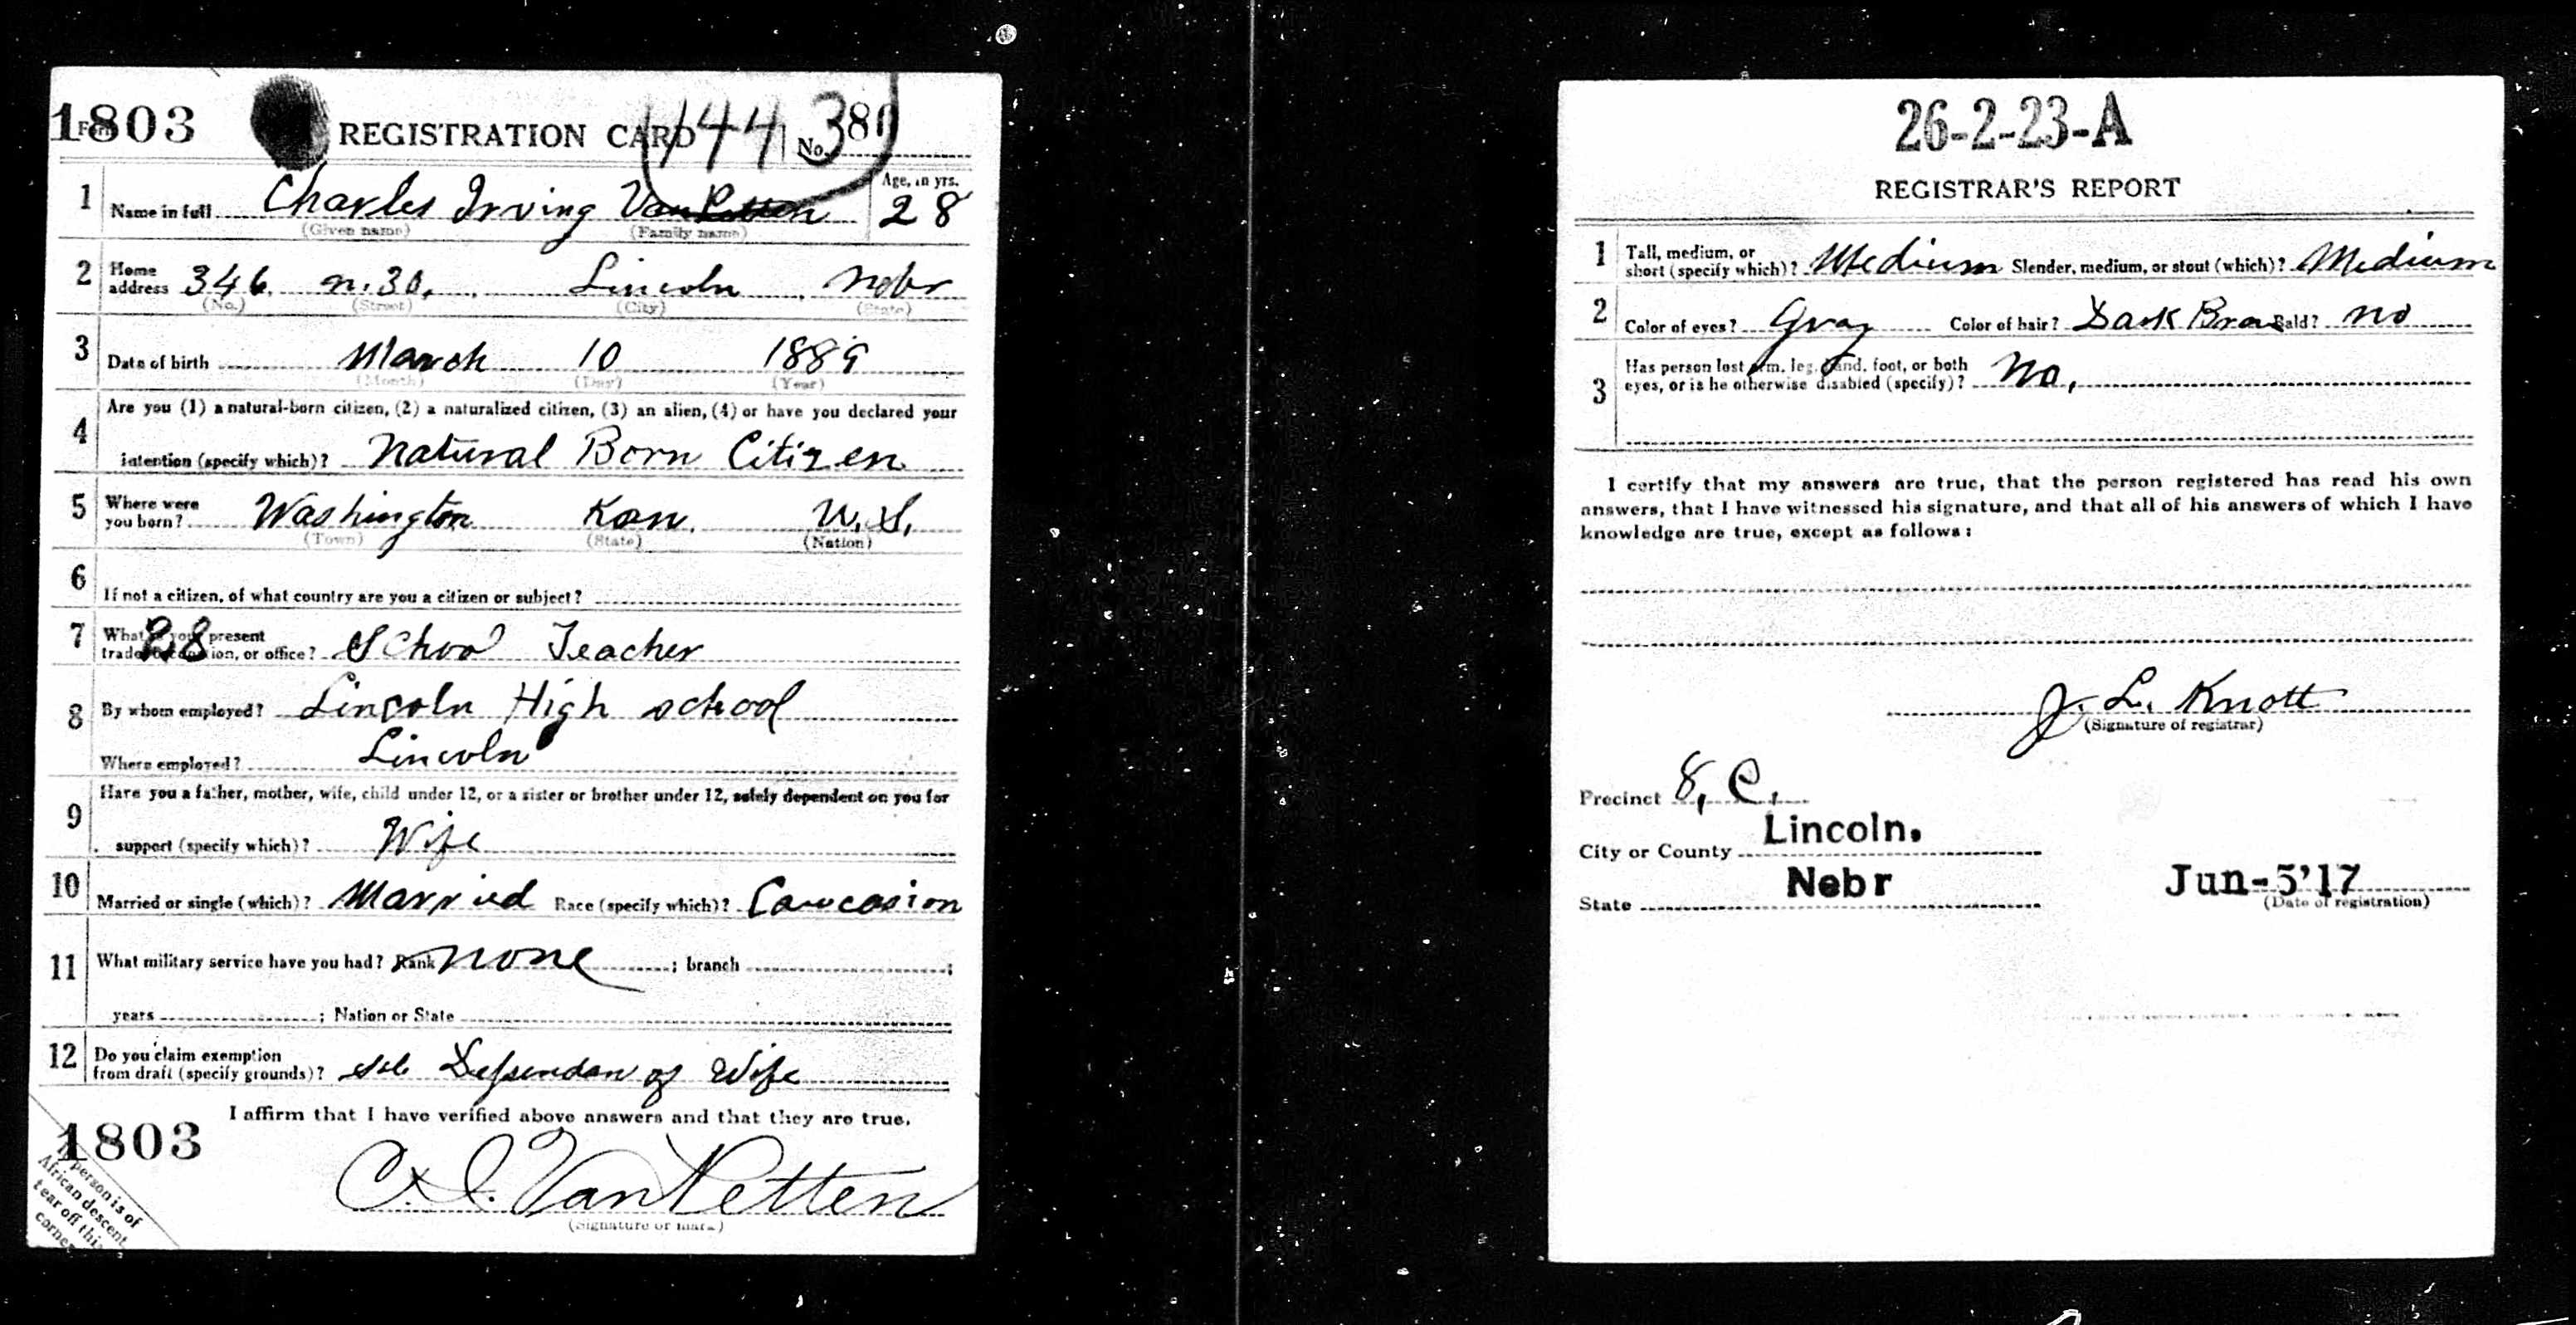 1803 REGISTRATION CARD 1443 No. 38
1 Name in full Charles Irving Van Petten Age, in yrs. 28
(Given name) (Family name)
2 Home address 346 n. 30. Lincoln Nebr
(No.) (Street) (City) (State)
3 Date of birth March 10 1889
(Month) (Day) (Year)
4 Are you (1) a natural-born citizen, (2) a naturalized citizen, (3) an alien, (4) or have you declared your
intention (specify which)? Natural Born Citizen
5 Where were you born? Washington Kan. U.S.
(Town) (State) (Nation)
6 If not a citizen, of what country are you a citizen or subject?
7 What is your present trade, occupation, or office? School Teacher
28
8 By whom employed? Lincoln High school
Where employed? Lincoln
9 Have you a father, mother, wife, child under 12, or a sister or brother under 12, solely dependent on you for
support (specify which)? Wife
10 Married or single (which)? Married Race (specify which)? Cawcasion
11 What military service have you had? Rank none ; branch ;
years ; Nation or State
12 Do you claim exemption from draft (specify grounds)? Dependan of Wife
I affirm that I have verified above answers and that they are true.
1803
C. I. Van Petten
(Signature or mark)
If person is of
African descent
tear off this
corner
26-2-23-A
REGISTRAR'S REPORT
1 Tall, medium, or short (specify which)? Medium Slender, medium, or stout (which)? Medium
2 Color of eyes? Gray Color of hair? Dark Bald? no
3 Has person lost arm, leg, hand, foot, or both
eyes, or is he otherwise disabled (specify)? No,
I certify that my answers are true, that the person registered has read his own
answers, that I have witnessed his signature, and that all of his answers of which I have
knowledge are true, except as follows:
J. L. Knott
(Signature of registrar)
Precinct 8, C.
City or County Lincoln.
State Nebr Jun-5'17
(Date of registration)